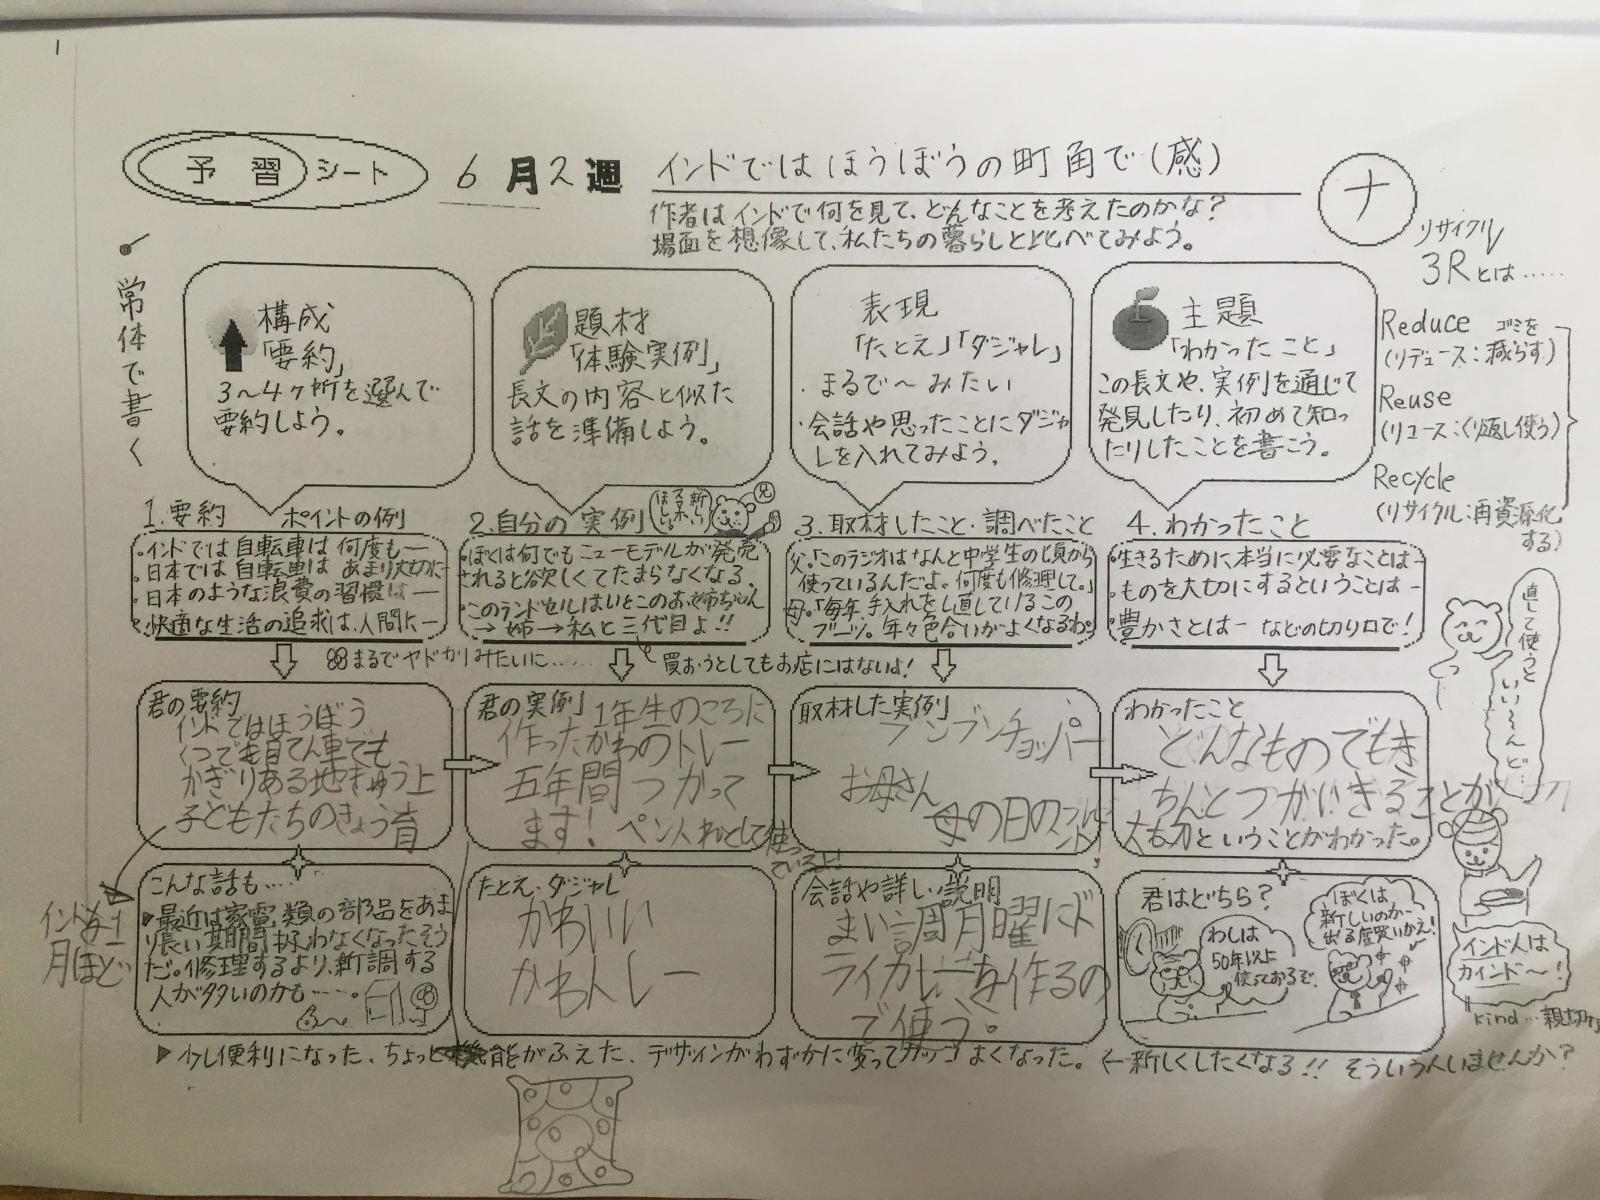 予習シート 6月2週 インドではほうぼうの町角で(感) ナ
作者はインドで何を見て、どんなことを考えたのかな?
場面を想像して、私たちの暮らしと比べてみよう。
常体で書く
構成
「要約」
3〜4ヶ所を選んで
要約しよう。
題材
「体験実例」
長文の内容と似た
話を準備しよう。
表現
「たとえ」「ダジャレ」
・まるで〜みたい
・会話や思ったことにダジャ
レを入れてみよう。
主題
「わかったこと」
この長文や、実例を通じて
発見したり、初めて知っ
たりしたことを書こう。
リサイクル
3Rとは……
Reduce ゴミを
(リデュース:減らす)
Reuse
(リユース:くり返し使う)
Recycle
(リサイクル:再資源化
する)
1.要約 ポイントの例
・インドでは自転車は何度も―
・日本では自転車はあまり大切に―
・日本のような浪費の習慣は―
・快適な生活の追求は、人間に―
2.自分の実例
新しいスマホほしい。
兄
・ぼくは何でもニューモデルが発売
されると欲しくてたまらなくなる。
・このランドセルはいとこのお姉ちゃん
→姉→私と三代目よ!!
3.取材したこと・調べたこと
父「このラジオはなんと中学生の頃から
使っているんだよ。何度も修理して。」
母「毎年、手入れをし直しているこの
ブーツ。年々色合いがよくなるわ。
4.わかったこと
・生きるために本当に必要なことは―
・ものを大切にするということは―
・豊かさとは― などの切り口で!
まるでヤドカリみたいに……
買おうとしてもお店にはないよ!
直して使うといいんどー…
君の要約
インドではほうぼう
くつでも自てん車でも
かぎりある地きゅう上
子どもたちのきょう育
君の実例
1年生のころに
作ったかわのトレー
五年間つかって
ます! ペン入れとして使
っているよ!
取材した実例
ブンブンチョッパー
お母さん
母の日の
わかったこと
どんなものでもき
ちんとつかいきることが
大切ということがわかった。
インド
月ほど
こんな話も……
▶最近は家電類の部品をあま
り長い期間扱わなくなったそう
だ。修理するより、新調する
人が多いのかも……。
たとえ・ダジャレ
かわいい
かわトレー
会話や詳しい説明
まい週月曜にド
ライカレーを作るの
で使う。
君はどちら?
わしは
50年以上
使っておるぞ。
ぼくは
新しいのが
出る度買いかえ!
インド人は
カインド〜!
kind…親切な
▶少し便利になった、ちょっと機能がふえた、デザインがわずかに変ってカッコよくなった。←新しくしたくなる!! そういう人いませんか?